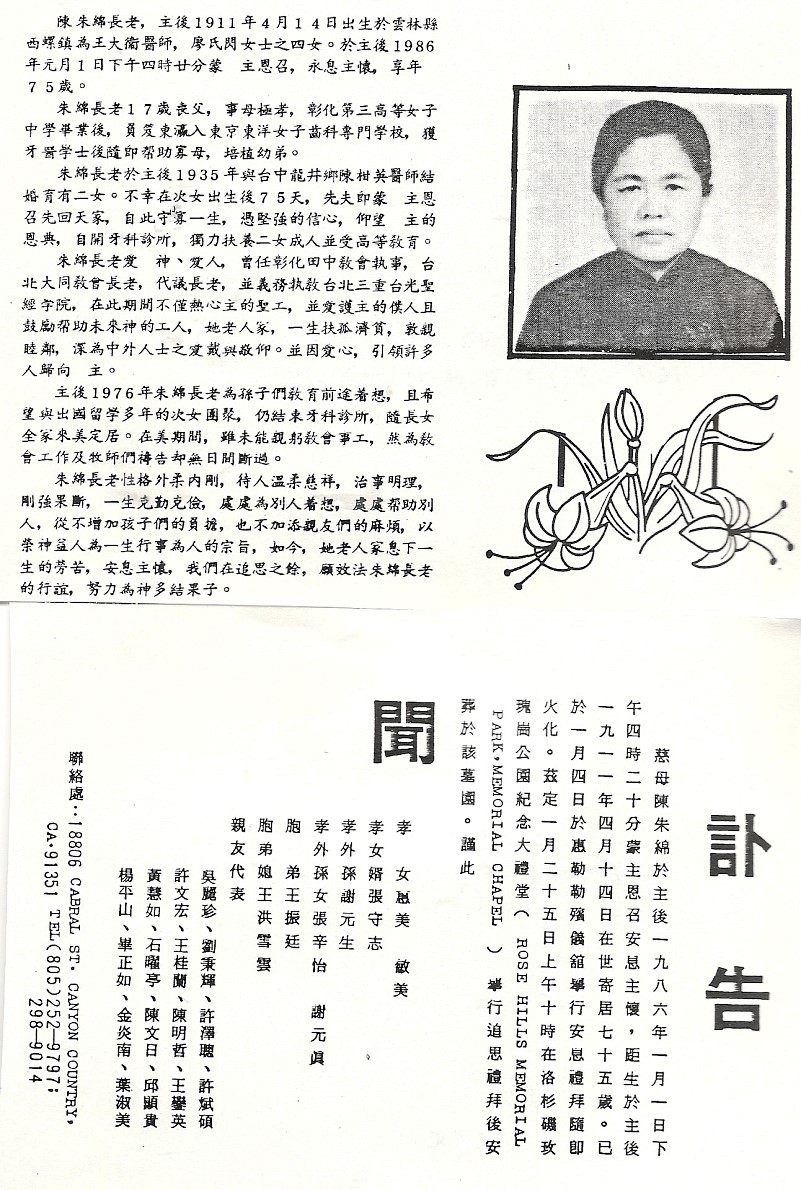 陳朱綿長老，主後1911年4月14日出生於雲林縣
西螺鎮為王大衛醫師，廖氏閃女士之四女。於主後1986
年元月1日下午四時廿分蒙　主恩召，永息主懷，享年
75歲。
朱綿長老17歲喪父，事母極孝，彰化第三高等女子
中學畢業後，負笈東瀛入東京東洋女子齒科專門學校，獲
牙醫學士後隨即幫助寡母，培植幼弟。
朱綿長老於主後1935年與台中龍井鄉陳柑英醫師結
婚育有二女。不幸在次女出生後75天，先夫即蒙　主恩
召先回天家，自此守寡一生，憑堅強的信心，仰望　主的
恩典，自開牙科診所，獨力扶養二女成人並受高等教育。
朱綿長老愛　神、愛人，曾任彰化田中教會執事，台
北大同教會長老，代議長老，並義務執教台北三重台光聖
經学院，在此期間不僅熱心主的聖工，並愛護主的僕人且
鼓勵幫助未來神的工人，她老人家，一生扶孤濟貧，敦親
睦鄰，深為中外人士之愛戴與敬仰。並因愛心，引領許多
人歸向　主。
主後1976年朱綿長老為孫子們教育前途着想，且希
望與出國留学多年的次女團聚，仍結束牙科診所，隨長女
全家來美定居。在美期間，雖未能親躬教會事工，然為教
會工作及牧師們禱告却無日間斷過。
朱綿長老性格外柔內剛，待人溫柔慈祥，治事明理，
剛強果斷，一生克勤克儉，處處為別人着想，處處幫助別
人，從不增加孩子們的負擔，也不加添親友們的麻煩，以
榮神益人為一生行事為人的宗旨，如今，她老人家息下一
生的勞苦，安息主懷，我們在追思之餘，願效法朱綿長老
的行誼，努力為神多結果子。
訃　告
慈母陳朱綿於主後一九八六年一月一日下
午四時二十分蒙主恩召安息主懷，距生於主後
一九一一年四月十四日在世寄居七十五歲。已
於一月四日於惠勒勒殯儀舘舉行安息禮拜隨即
火化。茲定一月二十五日上午十時在洛杉磯玫
瑰崗公園紀念大禮堂（ ROSE HILLS MEMORIAL
PARK,MEMORIAL CHAPEL ）舉行追思禮拜後安
葬於該墓園。謹此
聞
孝　女惠美　敏美
孝女婿張守志
孝外孫謝元生
孝外孫女張辛怡　謝元眞
胞　弟王振廷
胞弟媳王洪雪雲
親友代表
吳麗珍、劉秉輝、許澤聰、許斌碩
許文宏、王桂蘭、陳明哲、王鑾英
黃慧如、石曜亭、陳文日、邱顯貴
楊平山、畢正如、金炎南、葉淑美
聯絡處：18806 CABRAL ST. CANYON COUNTRY,
CA.91351 TEL(805)252-9797;
298-9014